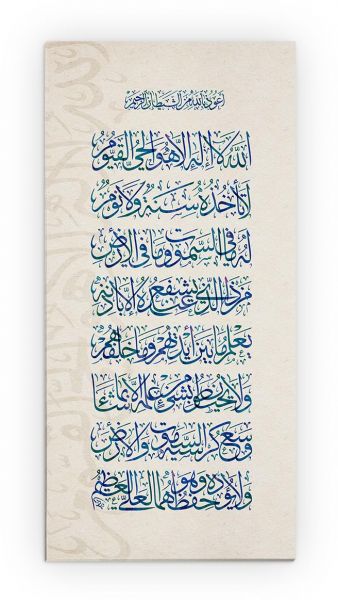 اعوذ بالله من الشيطان الرجيم
اللَّهُ لَا إِلَٰهَ إِلَّا هُوَ الْحَيُّ الْقَيُّومُ
لَا تَأْخُذُهُ سِنَةٌ وَلَا نَوْمٌ
لَهُ مَا فِي السَّمَٰوَٰتِ وَمَا فِي الْأَرْضِ
مَنْ ذَا الَّذِي يَشْفَعُ عِنْدَهُ إِلَّا بِإِذْنِهِ
يَعْلَمُ مَا بَيْنَ أَيْدِيهِمْ وَمَا خَلْفَهُمْ
وَلَا يُحِيطُونَ بِشَيْءٍ مِنْ عِلْمِهِ إِلَّا بِمَا شَاءَ
وَسِعَ كُرْسِيُّهُ السَّمَٰوَٰتِ وَالْأَرْضَ
وَلَا يَئُودُهُ حِفْظُهُمَا وَهُوَ الْعَلِيُّ الْعَظِيمُ